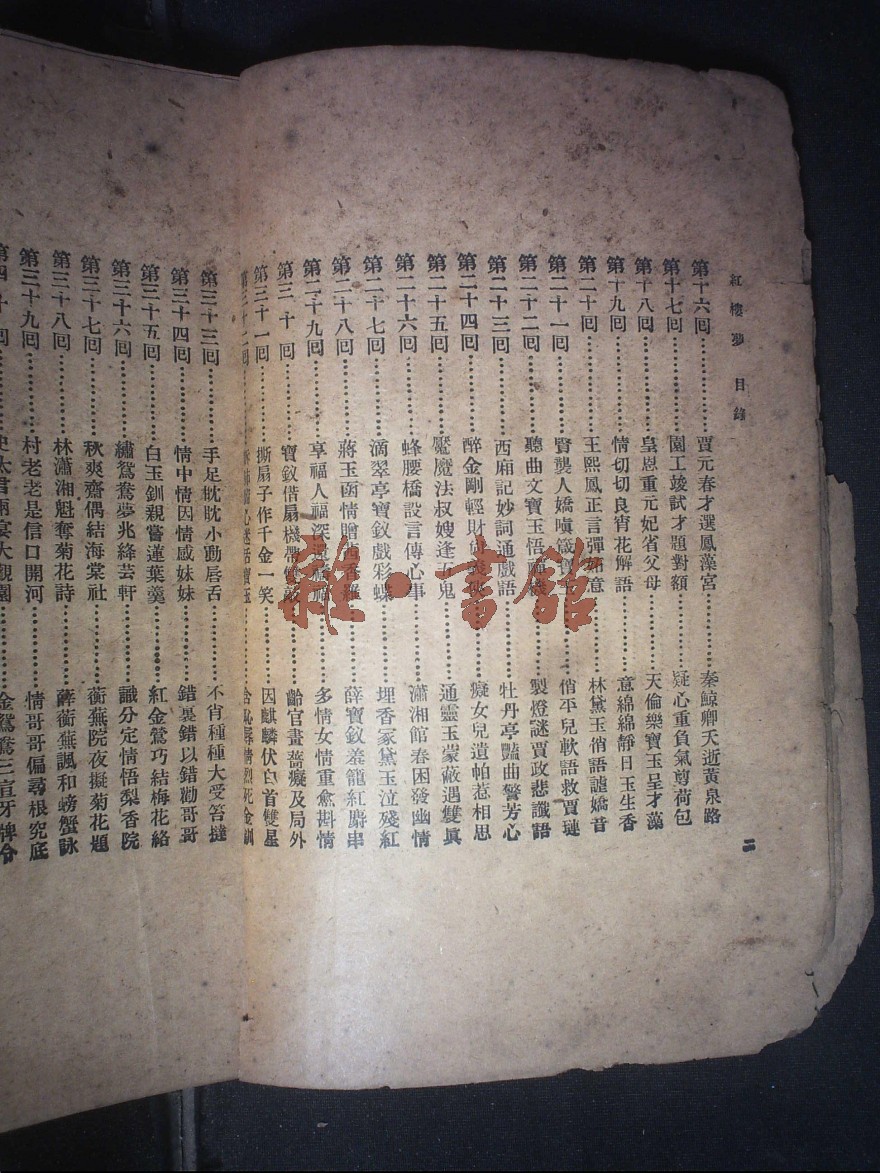 紅樓夢 目錄
二
第十六回 賈元春才選鳳藻宮 秦鯨卿夭逝黃泉路
第十七回 園工竣試才題對額 疑心重負氣剪荷包
第十八回 皇恩重元妃省父母 天倫樂寶玉呈才藻
第十九回 情切切良宵花解語 意綿綿靜日玉生香
第二十回 王熙鳳正言彈意 林黛玉俏語謔嬌音
第二十一回 賢襲人嬌嗔箴寶 俏平兒軟語救賈璉
第二十二回 聽曲文寶玉悟機 製燈謎賈政悲讖語
第二十三回 西廂記妙詞通戲語 牡丹亭豔曲警芳心
第二十四回 醉金剛輕財 癡女兒遺帕惹相思
第二十五回 魘魔法叔嫂逢五鬼 通靈玉蒙蔽遇雙眞
第二十六回 蜂腰橋設言傳心事 瀟湘館春困發幽情
第二十七回 滴翠亭寶釵戲彩蝶 埋香冢黛玉泣殘紅
第二十八回 蔣玉函情贈香羅 薛寶釵羞籠紅麝串
第二十九回 享福人福深福 多情女情重愈斟情
第三十回 寶釵借扇機帶雙敲 齡官畫薔癡及局外
第三十一回 撕扇子作千金一笑 因麒麟伏白首雙星
第三十二回 心迷活寶玉 含恥辱情烈死金釧
第三十三回 手足眈眈小動唇舌 不肖種種大受笞撻
第三十四回 情中情因情感妹妹 錯裏錯以錯勸哥哥
第三十五回 白玉釧親嘗蓮葉羹 紅金鶯巧結梅花絡
第三十六回 繡鴛鴦夢兆絳芸軒 識分定情悟梨香院
第三十七回 秋爽齋偶結海棠社 蘅蕪院夜擬菊花題
第三十八回 林瀟湘魁奪菊花詩 薛蘅蕪諷和螃蟹詠
第三十九回 村老老是信口開河 情哥哥偏尋根究底
第四十回 史太君兩宴大觀園 金鴛鴦三宣牙牌令
雜·書館